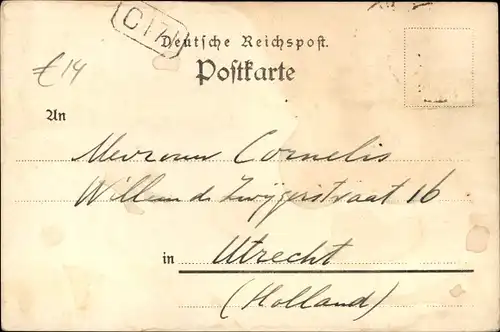 C17
Deutsche Reichspost.
Postkarte
€14
An
Mevrouw Cornelis
Willem de Zwijgerstraat 16
in Utrecht
(Holland)